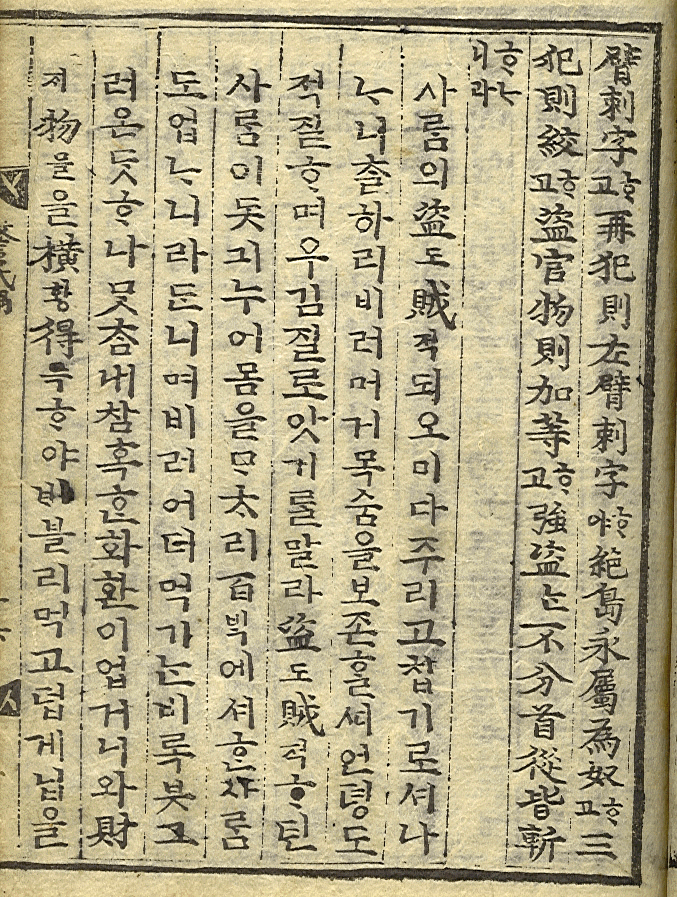 臂刺字ᄒᆞ고再犯則左臂刺字ᄒᆞ야絶島永屬為奴ᄒᆞ고三
犯則絞ᄒᆞ고盜官物則加等ᄒᆞ고強盜ᄂᆞᆫ不分首從皆斬
ᄒᆞᄂᆞ니라
사ᄅᆞᆷ의盜도賊적되오미다주리고찹기로셔나
ᄂᆞ니ᄎᆞᆯ하리비러머거목숨을보존ᄒᆞᆯ셰언뎡도
적질ᄒᆞ며우김질로앗기ᄅᆞᆯ말라盜도賊적ᄒᆞ던
사ᄅᆞᆷ이돗긔누어몸을ᄆᆞᄎᆞ리百ᄇᆡᆨ에셔ᄒᆞᆫ사ᄅᆞᆷ
도업ᄂᆞ니라ᄃᆞᆫ니며비러어더먹기ᄂᆞᆫ비록붓그
러온ᄃᆞᆺᄒᆞ나ᄆᆞᄎᆞᆷ내참혹ᄒᆞᆫ화환이업거니와財
ᄌᆡ物믈을橫황得득ᄒᆞ야ᄇᆡ블리먹고덥게닙을